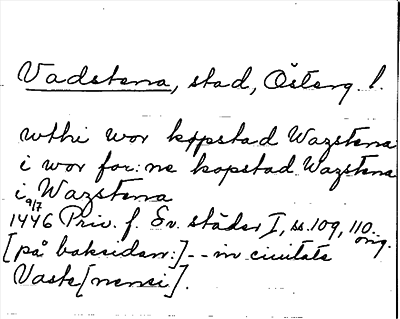 Vadstena, stad, Österg. l.
wthi wor köpstad Wazstena
i wor for:ne kopstad Wazstena
i Wazstena
9/7
1446 Priv. f. Sv. städer I, ss. 109, 110.
orig.
[på baksidan:] -- in ciuitate
Vaste[nensi].